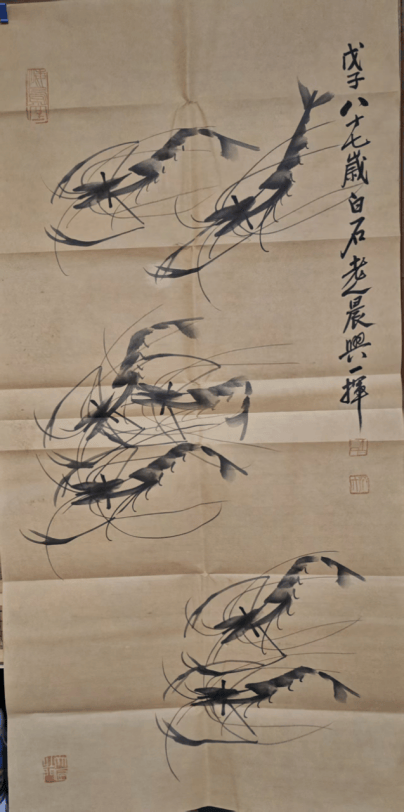 戊子八十七歲白石老人晨興一揮